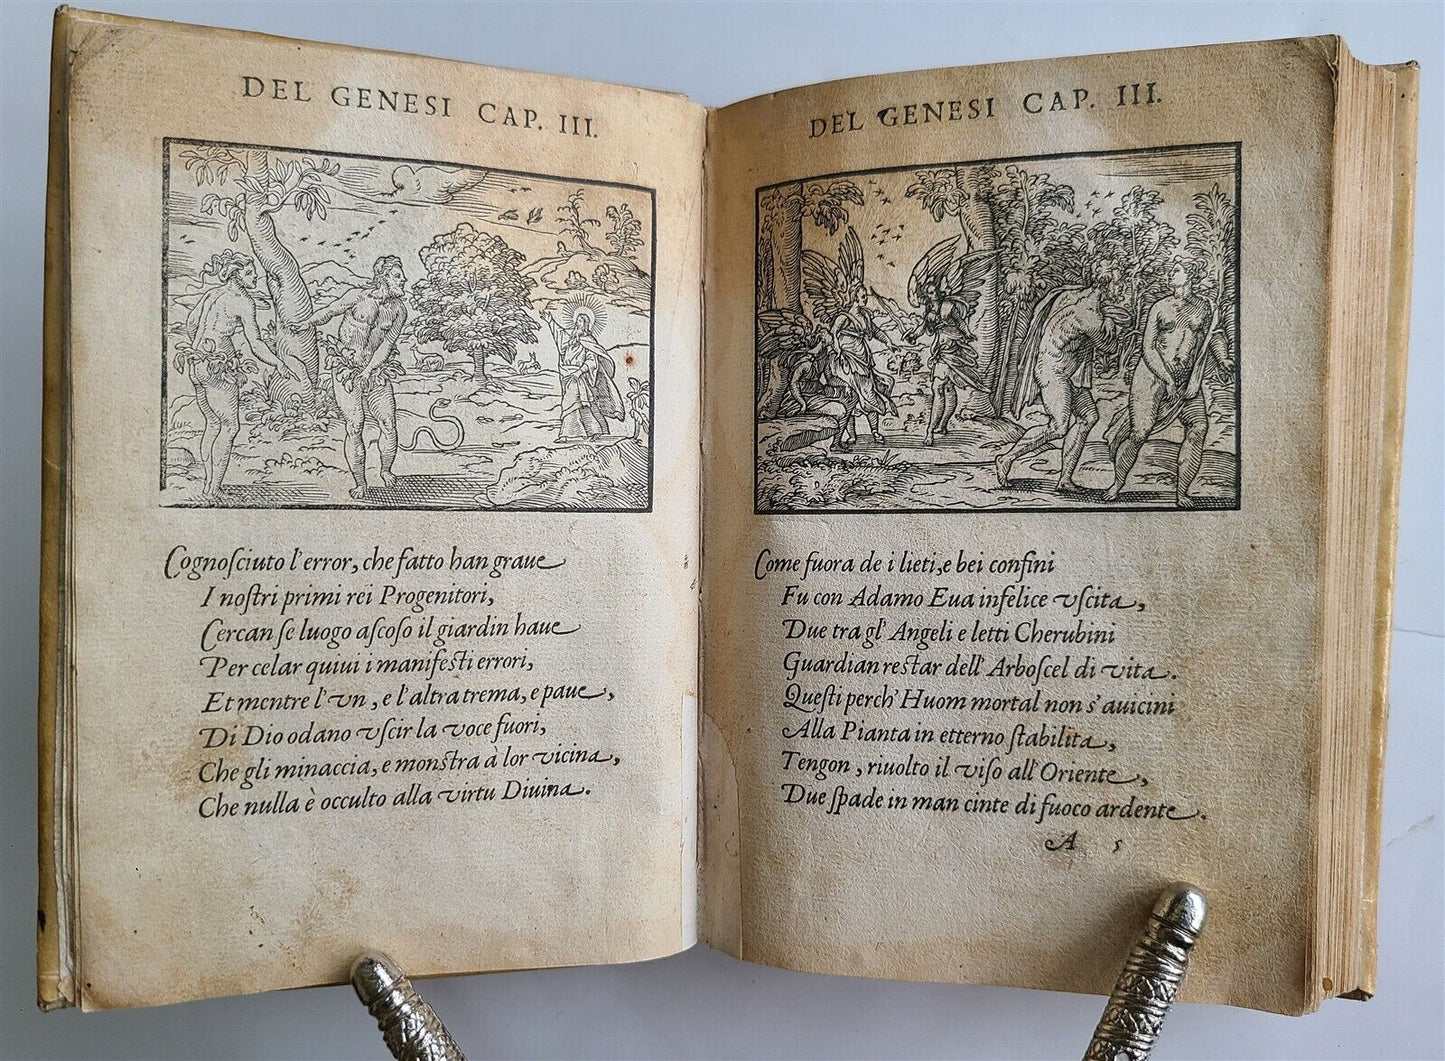 DEL GENESI CAP. III.
Cognoſciuto l'error, che fatto han graue
I noſtri primi rei Progenitori,
Cercan ſe luogo aſcoſo il giardin haue
Per celar quiui i manifeſti errori,
Et mentre l'vn, e l'altra trema, e paue,
Di Dio odano vſcir la voce fuori,
Che gli minaccia, e monſtra à lor vicina,
Che nulla è occulto alla virtu Diuina.
DEL GENESI CAP. III.
Come fuora de i lieti, e bei confini
Fu con Adamo Eua infelice vſcita,
Due tra gl' Angeli eletti Cherubini
Guardian reſtar dell' Arboſcel di vita.
Queſti perch' Huom mortal non s'auicini
Alla Pianta in etterno ſtabilita,
Tengon, riuolto il viſo all'Oriente,
Due ſpade in man cinte di fuoco ardente.
A 5